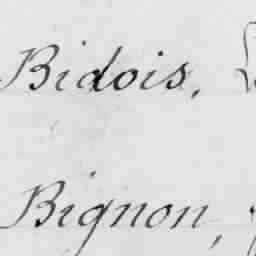 Bidois,
Bignon,